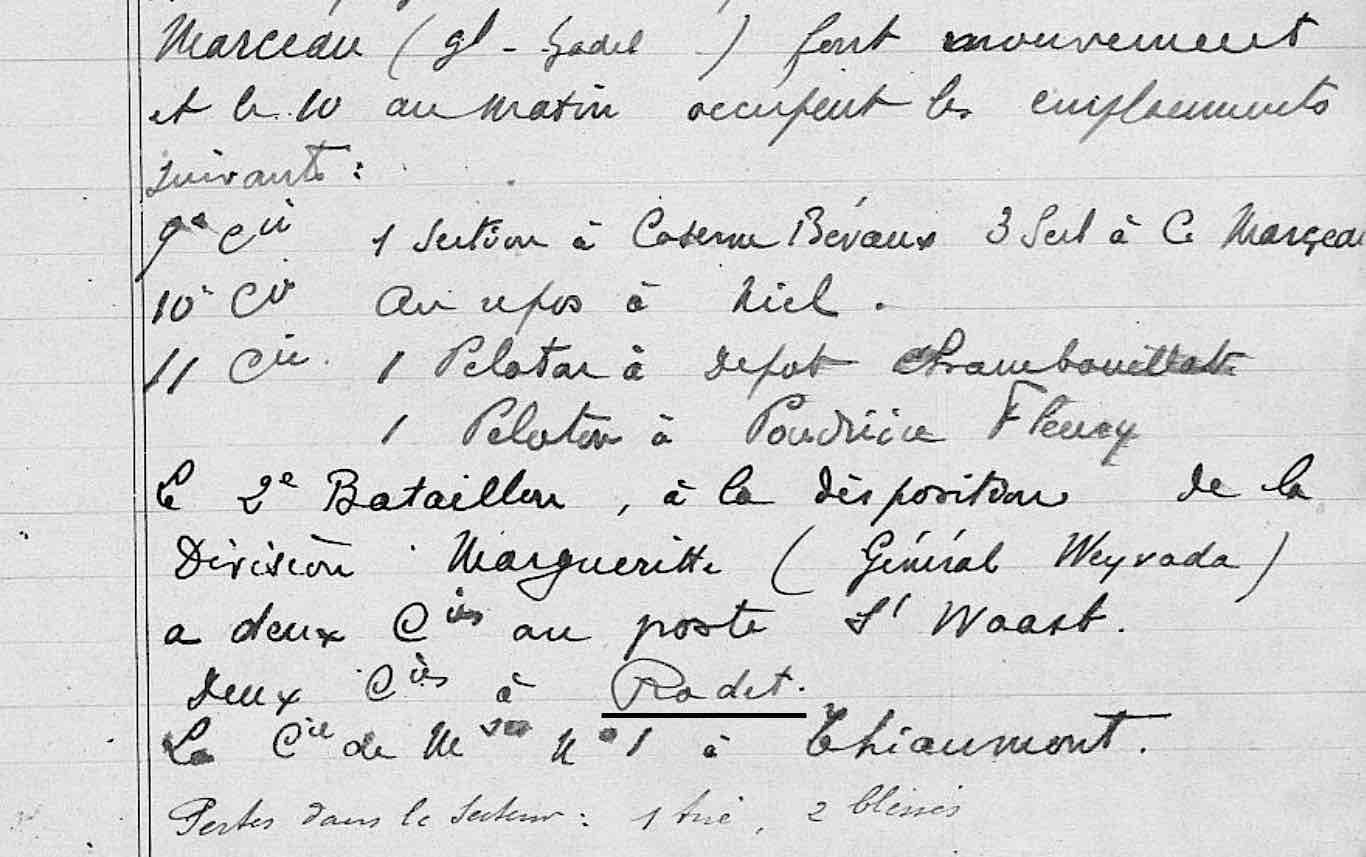 Marceau (gl - Gadel) font mouvement
et le 10 au matin occupent les emplacements
suivants :
9e Cie 1 Section à Caserne Bévaux 3 Sect à C. Marceau
10e Cie Au repos à Niel.
11 Cie. 1 Peloton à Depot
1 Peloton à Poudrière Fleury
Le 2e Bataillon, à la disposition de la
Division Margueritte (Général Weyvada)
a deux Cies au poste St Waast.
Deux Cies à Radet.
La Cie de Mses No 1 à Thiaumont.
Pertes dans le Secteur : 1 tué, 2 blessés